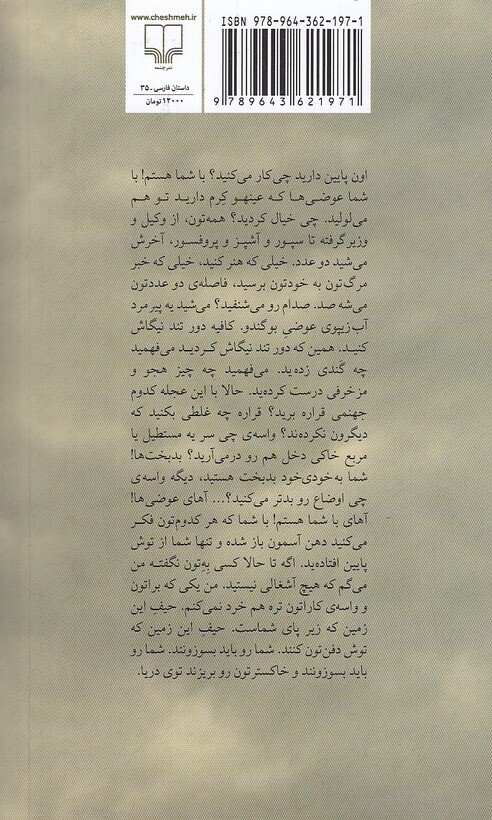 www.cheshmeh.ir
نشرچشمه
داستان فارسی ـ ۳۵
۱۲۰۰۰ تومان
ISBN 978-964-362-197-1
9 789643 621971
اون پایین دارید چی‌کار می‌کنید؟ با شما هستم! با
شما عوضی‌ها که عینهو کِرم دارید تو هم
می‌لولید. چی خیال کردید؟ همه‌تون، از وکیل و
وزیر گرفته تا سپور و آشپز و پروفسور، آخرش
می‌شید دو عدد. خیلی که هنر کنید، خیلی که خبر
مرگ‌تون به خودتون برسید، فاصله‌ی دو عددتون
می‌شه صد. صدام رو می‌شنفید؟ می‌شید یه پیرمرد
آب‌زیپوی عوضیِ بوگندو. کافیه دور تند نیگاش
کنید. همین که دور تند نیگاش کردید می‌فهمید
چه گندی زده‌ید. می‌فهمید چه چیز هجو و
مزخرفی درست کرده‌ید. حالا با این عجله کدوم
جهنمی قراره برید؟ قراره چه غلطی بکنید که
دیگرون نکرده‌ند؟ واسه‌ی چی سر یه مستطیل یا
مربع خاکی دخل هم رو درمی‌آرید؟ بدبخت‌ها!
شما به‌خودی‌خود بدبخت هستید، دیگه واسه‌ی
چی اوضاع رو بدتر می‌کنید؟... آهای عوضی‌ها!
آهای با شما هستم! با شما که هر کدوم‌تون فکر
می‌کنید دهن آسمون باز شده و تنها شما از توش
پایین افتاده‌ید. اگه تا حالا کسی بِه‌تون نگفته من
می‌گم که هیچ آشغالی نیستید. من یکی که براتون
و واسه‌ی کاراتون تره هم خرد نمی‌کنم. حیفِ این
زمین که زیر پای شماست. حیفِ این زمین که
توش دفن‌تون کنند. شما رو باید بسوزونند. شما رو
باید بسوزونند و خاکسترتون رو بریزند توی دریا.